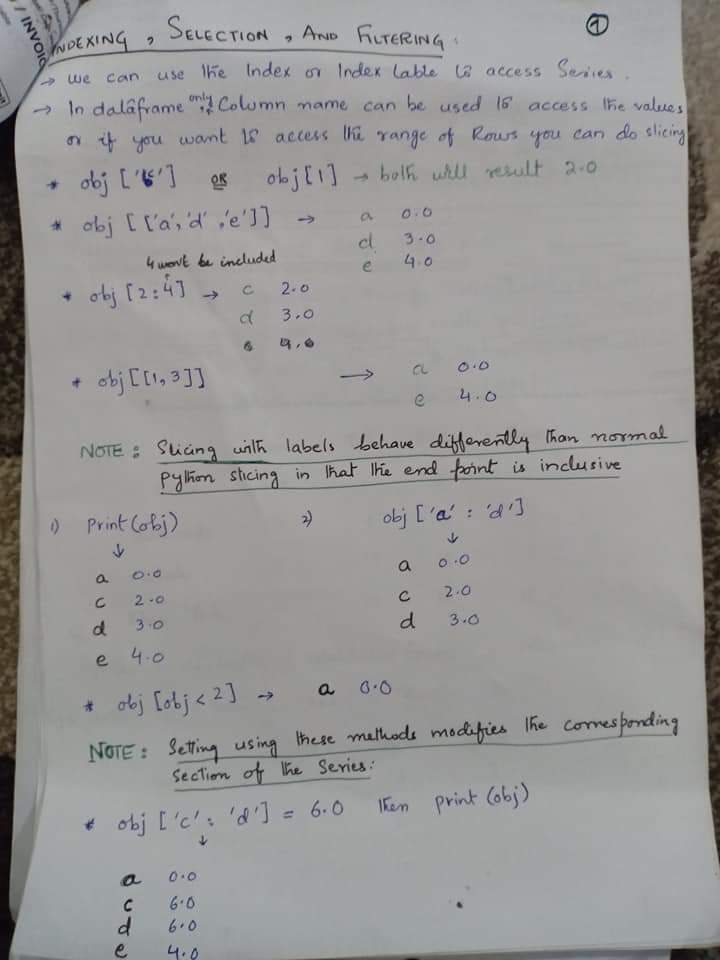 INVOIC
INDEXING, SELECTION, AND FILTERING: 1
→ we can use the Index or Index lable to access Series.
→ In datâframe only Column name can be used to access the values
or if you want to access the range of Rows you can do slicing
* obj [' '] OR obj[1] → both will result 2.0
* obj [['a','d','e']] → a 0.0
d 3.0
e 4.0
4 won't be included
* obj [2:4] → c 2.0
d 3.0
e 4.0
* obj[[1,3]] → a 0.0
e 4.0
NOTE: Slicing with labels behave differently than normal
python slicing in that the end point is inclusive
1) Print(obj) 2) obj ['a' : 'd']
↓ ↓
a 0.0 a 0.0
c 2.0 c 2.0
d 3.0 d 3.0
e 4.0
* obj [obj < 2] → a 0.0
NOTE: Setting using these methods modifies the corresponding
section of the Series:
* obj ['c': 'd'] = 6.0 then print (obj)
↓
a 0.0
c 6.0
d 6.0
e 4.0